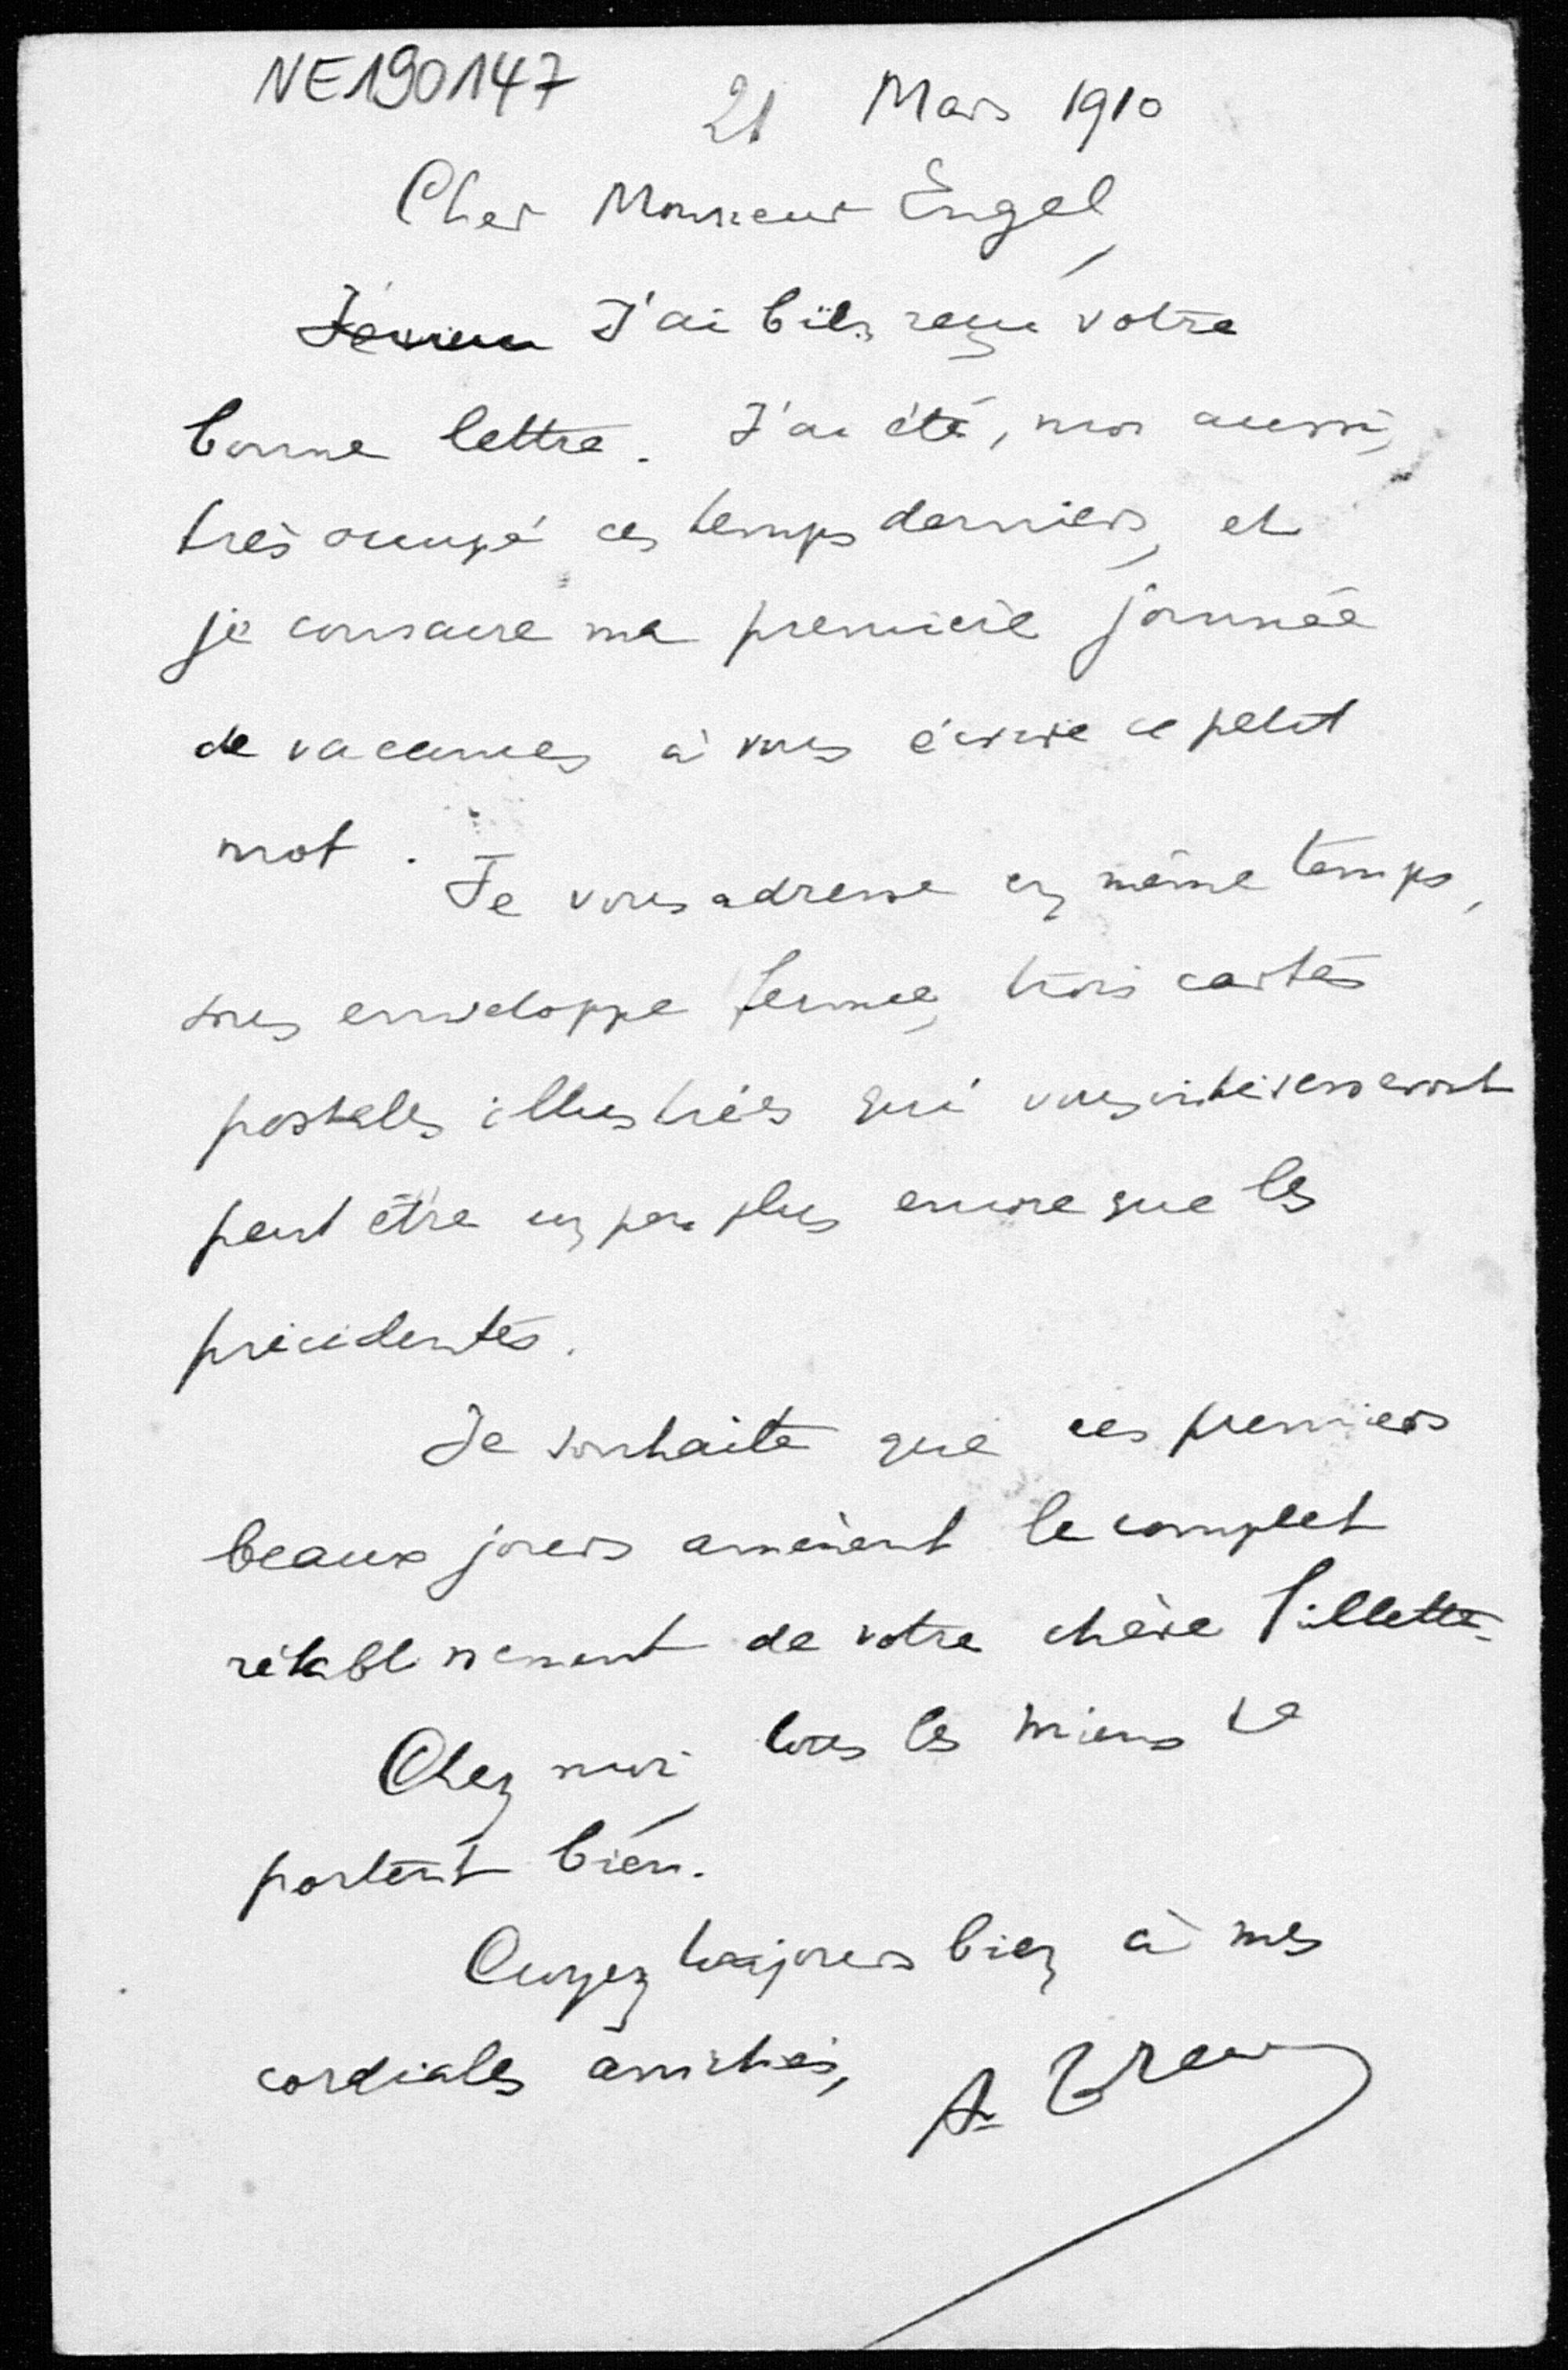 NE190147
21 Mars 1910
Cher Monsieur Engel,
J'ai bien reçu votre
bonne lettre. J'ai été, moi aussi,
très occupé ces temps derniers, et
je consacre ma première journée
de vacances à vous écrire ce petit
mot.
Je vous adresse en même temps,
sous enveloppe fermée, trois cartes
postales illustrées qui vous intéresseront
peut être un peu plus encore que les
précédentes.
Je souhaite que ces premiers
beaux jours amènent le complet
rétablissement de votre chère fillette.
Chez moi, tous les miens se
portent bien.
Croyez toujours bien à mes
cordiales amitiés,